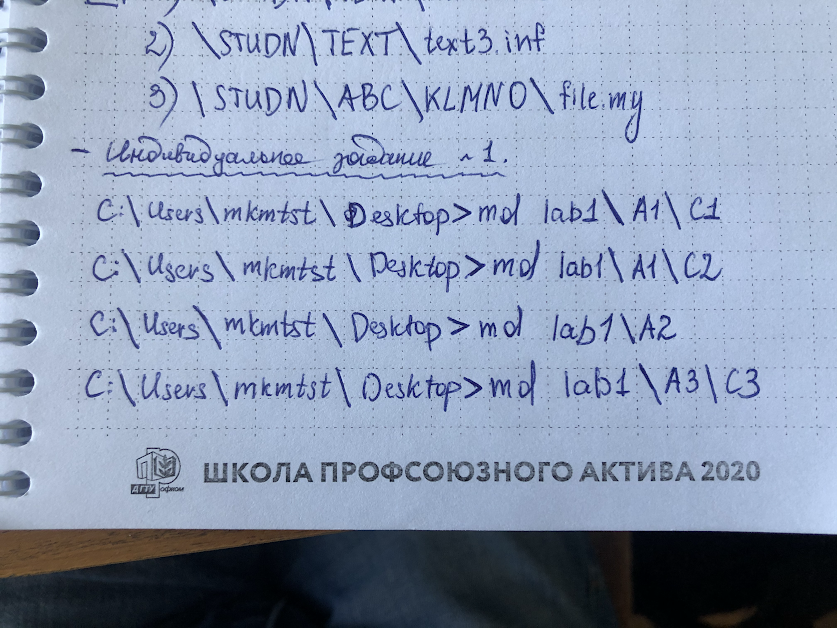 2) \STUDN\TEXT\text3.inf
3) \STUDN\ABC\KLMNO\file.my
- Индивидуальное задание ~1.
C:\Users\mkmtst\Desktop>md lab1\A1\C1
C:\Users\mkmtst\Desktop>md lab1\A1\C2
C:\Users\mkmtst\Desktop>md lab1\A2
C:\Users\mkmtst\Desktop>md lab1\A3\C3
ШКОЛА ПРОФСОЮЗНОГО АКТИВА 2020